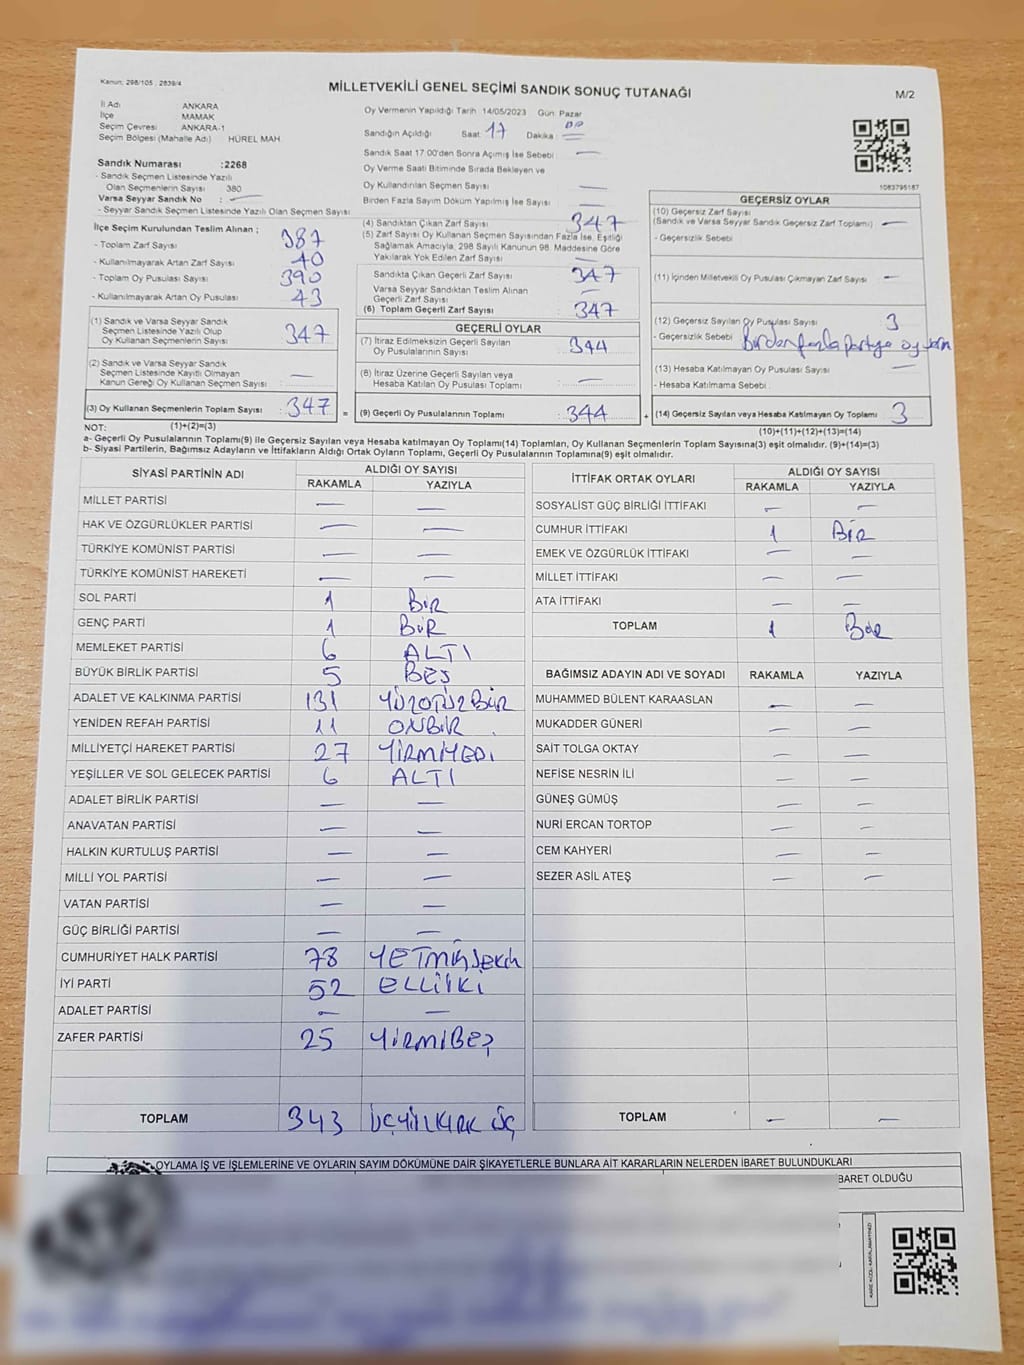 Kanun; 298/105 , 2839/4
MİLLETVEKİLİ GENEL SEÇİMİ SANDIK SONUÇ TUTANAĞI
M/2
İl Adı ANKARA
İlçe MAMAK
Seçim Çevresi ANKARA-1
Seçim Bölgesi (Mahalle Adı) HÜREL MAH
Oy Vermenin Yapıldığı Tarih 14/05/2023 Gün: Pazar
Sandığın Açıldığı Saat 17 Dakika :
Sandık Saat 17:00'den Sonra Açılmış İse Sebebi : —
Oy Verme Saati Bitiminde Sırada Bekleyen ve
Oy Kullandırılan Seçmen Sayısı : —
Birden Fazla Sayım Döküm Yapılmış İse Sayısı : —
Sandık Numarası :2268
- Sandık Seçmen Listesinde Yazılı
Olan Seçmenlerin Sayısı 380
Varsa Seyyar Sandık No : —
- Seyyar Sandık Seçmen Listesinde Yazılı Olan Seçmen Sayısı
1083795187
İlçe Seçim Kurulundan Teslim Alınan ;
- Toplam Zarf Sayısı 387
- Kullanılmayarak Artan Zarf Sayısı 40
- Toplam Oy Pusulası Sayısı 390
- Kullanılmayarak Artan Oy Pusulası 43
(1) Sandık ve Varsa Seyyar Sandık
Seçmen Listesinde Yazılı Olup
Oy Kullanan Seçmenlerin Sayısı 347
(2) Sandık ve Varsa Seyyar Sandık
Seçmen Listesinde Kayıtlı Olmayan
Kanun Gereği Oy Kullanan Seçmen Sayısı : —
(3) Oy Kullanan Seçmenlerin Toplam Sayısı : 347 =
(1)+(2)=(3)
(4) Sandıktan Çıkan Zarf Sayısı 347
(5) Zarf Sayısı Oy Kullanan Seçmen Sayısından Fazla İse, Eşitliği
Sağlamak Amacıyla, 298 Sayılı Kanunun 98. Maddesine Göre
Yakılarak Yok Edilen Zarf Sayısı : —
Sandıkta Çıkan Geçerli Zarf Sayısı 347
Varsa Seyyar Sandıktan Teslim Alınan
Geçerli Zarf Sayısı —
(6) Toplam Geçerli Zarf Sayısı 347
GEÇERLİ OYLAR
(7) İtiraz Edilmeksizin Geçerli Sayılan
Oy Pusulalarının Sayısı : 344
(8) İtiraz Üzerine Geçerli Sayılan veya
Hesaba Katılan Oy Pusulası Toplamı : —
(9) Geçerli Oy Pusulalarının Toplamı : 344 +
GEÇERSİZ OYLAR
(10) Geçersiz Zarf Sayısı
(Sandık ve Varsa Seyyar Sandık Geçersiz Zarf Toplamı) : —
- Geçersizlik Sebebi :
(11) İçinden Milletvekili Oy Pusulası Çıkmayan Zarf Sayısı : —
(12) Geçersiz Sayılan Oy Pusulası Sayısı 3
- Geçersizlik Sebebi : Birden fazla partiye oy
(13) Hesaba Katılmayan Oy Pusulası Sayısı : —
- Hesaba Katılmama Sebebi :
(14) Geçersiz Sayılan veya Hesaba Katılmayan Oy Toplamı : 3
(10)+(11)+(12)+(13)=(14)
NOT:
a- Geçerli Oy Pusulalarının Toplamı(9) ile Geçersiz Sayılan veya Hesaba katılmayan Oy Toplamı(14) Toplamları, Oy Kullanan Seçmenlerin Toplam Sayısına(3) eşit olmalıdır. (9)+(14)=(3)
b- Siyasi Partilerin, Bağımsız Adayların ve İttifakların Aldığı Ortak Oyların Toplamı, Geçerli Oy Pusulalarının Toplamına(9) eşit olmalıdır.
SİYASİ PARTİNİN ADI ALDIĞI OY SAYISI
RAKAMLA YAZIYLA
MİLLET PARTİSİ — —
HAK VE ÖZGÜRLÜKLER PARTİSİ — —
TÜRKİYE KOMÜNİST PARTİSİ — —
TÜRKİYE KOMÜNİST HAREKETİ — —
SOL PARTİ 1 BİR
GENÇ PARTİ 1 BİR
MEMLEKET PARTİSİ 6 ALTI
BÜYÜK BİRLİK PARTİSİ 5 BEŞ
ADALET VE KALKINMA PARTİSİ 131 YÜZOTUZBİR
YENİDEN REFAH PARTİSİ 11 ONBİR
MİLLİYETÇİ HAREKET PARTİSİ 27 YİRMİYEDİ
YEŞİLLER VE SOL GELECEK PARTİSİ 6 ALTI
ADALET BİRLİK PARTİSİ — —
ANAVATAN PARTİSİ — —
HALKIN KURTULUŞ PARTİSİ — —
MİLLİ YOL PARTİSİ — —
VATAN PARTİSİ — —
GÜÇ BİRLİĞİ PARTİSİ — —
CUMHURİYET HALK PARTİSİ 78 YETMİŞSEKİZ
İYİ PARTİ 52 ELLİİKİ
ADALET PARTİSİ — —
ZAFER PARTİSİ 25 YİRMİBEŞ
TOPLAM 343 ÜÇYÜZKIRK ÜÇ
İTTİFAK ORTAK OYLARI ALDIĞI OY SAYISI
RAKAMLA YAZIYLA
SOSYALİST GÜÇ BİRLİĞİ İTTİFAKI — —
CUMHUR İTTİFAKI 1 BİR
EMEK VE ÖZGÜRLÜK İTTİFAKI — —
MİLLET İTTİFAKI — —
ATA İTTİFAKI — —
TOPLAM 1 BİR
BAĞIMSIZ ADAYIN ADI VE SOYADI RAKAMLA YAZIYLA
MUHAMMED BÜLENT KARAASLAN — —
MUKADDER GÜNERİ — —
SAİT TOLGA OKTAY — —
NEFİSE NESRİN İLİ — —
GÜNEŞ GÜMÜŞ — —
NURİ ERCAN TORTOP — —
CEM KAHYERİ — —
SEZER ASİL ATEŞ — —
TOPLAM — —
OYLAMA İŞ VE İŞLEMLERİNE VE OYLARIN SAYIM DÖKÜMÜNE DAİR ŞİKAYETLERLE BUNLARA AİT KARARLARIN NELERDEN İBARET BULUNDUKLARI
BARET OLDUĞU
KARE KODU KARALAMAYINIZ!